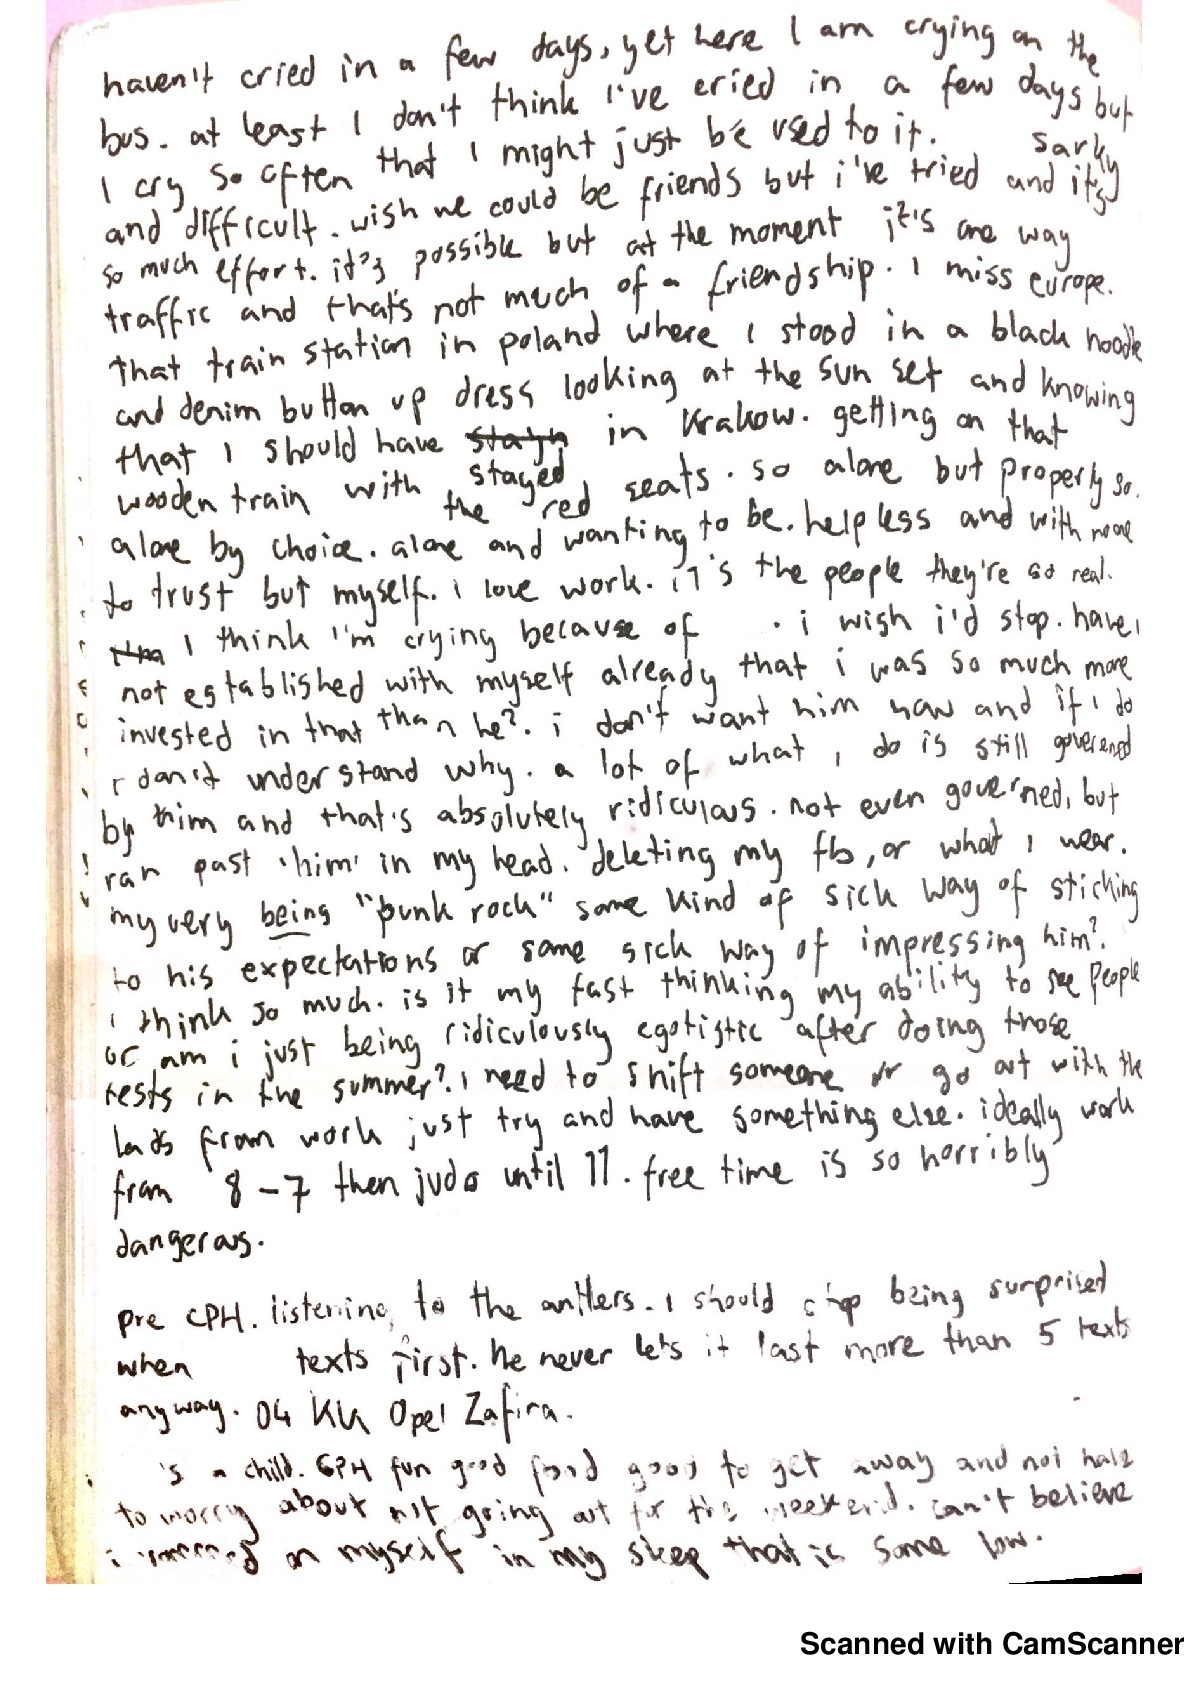 haven't cried in a few days, yet here I am crying on the
bus. at least I don't think I've cried in a few days but
I cry so often that I might just be used to it. sarky
and difficult. wish we could be friends but i've tried and it's
so much effort. it's possible but at the moment it's one way
traffic and that's not much of a friendship. I miss europe.
that train station in poland where I stood in a black hoodie
and denim button up dress looking at the sun set and knowing
that I should have stayed in Krakow. getting on that
wooden train with the red seats. so alone but properly so.
alone by choice. alone and wanting to be. helpless and with none
to trust but myself. i love work. it's the people they're so real.
I think I'm crying because of . i wish i'd stop. have i
not established with myself already that i was so much more
invested in that than he?. i don't want him now and if i do
I don't understand why. a lot of what i do is still governed
by him and that's absolutely ridiculous. not even governed, but
ran past 'him' in my head. deleting my fb, or what I wear.
my very being "punk rock" some kind of sick way of sticking
to his expectations or some sick way of impressing him?.
i think so much. is it my fast thinking my ability to see people
or am i just being ridiculously egotistic after doing those
tests in the summer?. I need to shift someone or go out with the
lads from work just try and have something else. ideally work
from 8-7 then judo until 11. free time is so horribly
dangerous.
pre CPH. listening to the antlers. I should stop being surprised
when texts first. he never lets it last more than 5 texts
anyway. 04 KK Opel Zafira.
's a child. CPH fun good food good to get away and not have
to worry about not going out for the weekend. can't believe
i on myself in my sleep that is some low.
Scanned with CamScanner